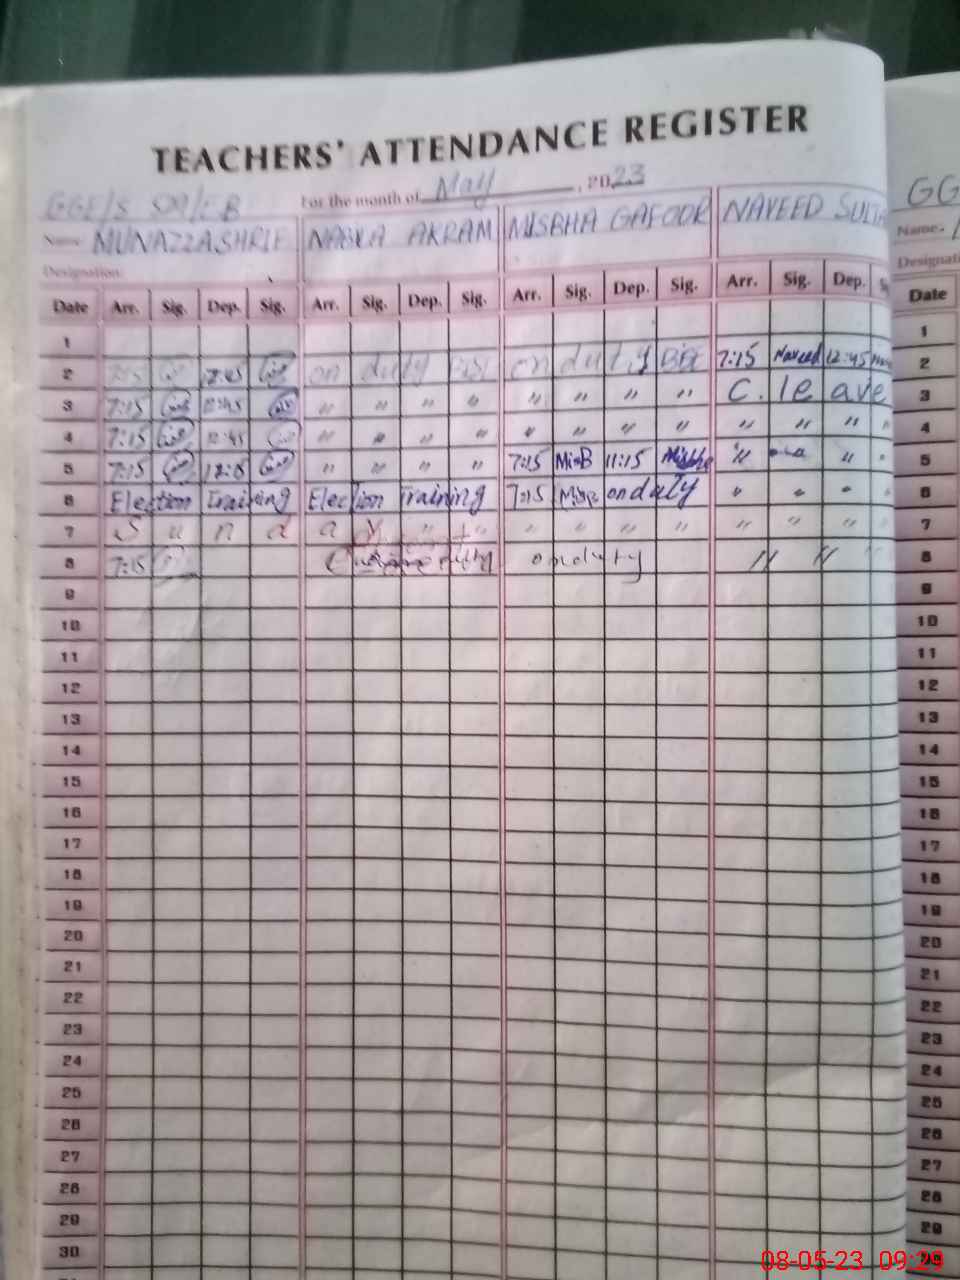 TEACHERS' ATTENDANCE REGISTER
For the month of May, 2023
GG
Name MUNAZZA SHRIF NABILA AKRAM MISBHA GAFOOR NAVEED SULTA Name.
Designation Designati
Date Arr. Sig. Dep. Sig. Arr. Sig. Dep. Sig. Arr. Sig. Dep. Sig. Arr. Sig. Dep. S Date
1 1
2 7:15 12:45 on duty on duty 7:15 Naveed 12:45 2
3 7:15 12:45 " " " " " " " " C. leave 3
4 7:15 12:45 " " " " " " " " " " " " 4
5 7:15 " " " " 7:15 MisB 11:15 Misbha " " 5
6 Election Training Election Training 7:15 on duty " " " " 6
7 S u n d a y " " " " " " " " " " 7
8 7:15 duty on duty " " " 8
9 9
10 10
11 11
12 12
13 13
14 14
15 15
16 16
17 17
18 18
19 19
20 20
21 21
22 22
23 23
24 24
25 25
26 26
27 27
28 28
29 29
30
08-05-23 09:29